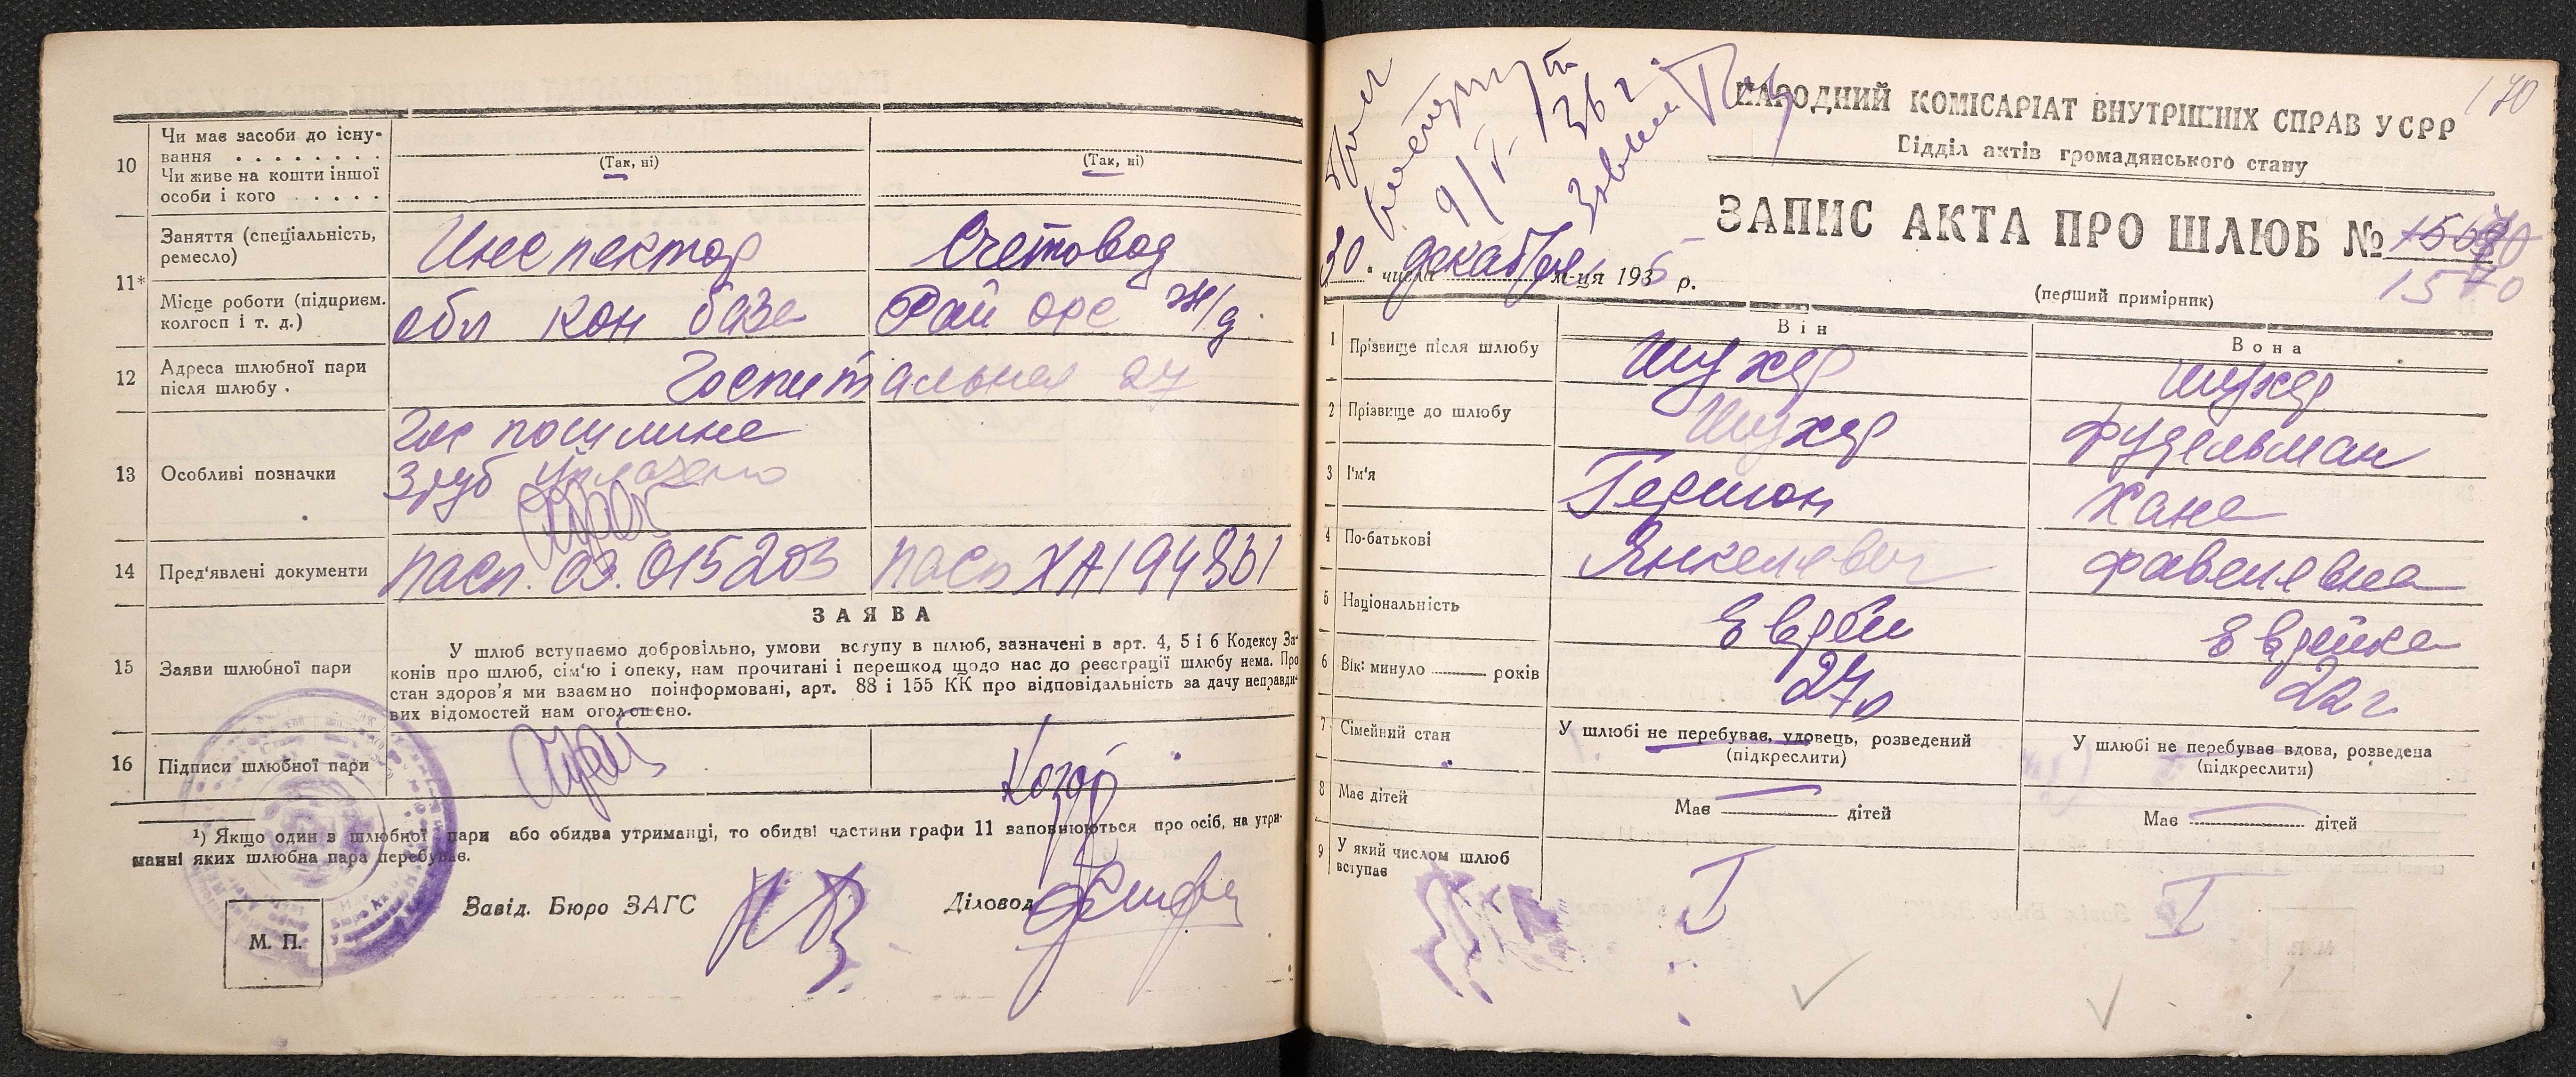 10
Чи має засоби до існу-
вання . . . . . . . .
Чи живе на кошти іншої
особи і кого . . . . .
(Так, ні)
(Так, ні)
11*
Заняття (спеціальність,
ремесло)
Инспектор
Счетовод
Місце роботи (підприєм.
колгосп і т. д.)
обл кон база
Рай орс ж/д.
12
Адреса шлюбної пари
після шлюбу .
Госпитальная 27
13
Особливі позначки
Гос пошлина
3 руб уплачено
14
Пред'явлені документи
пасп. 03.015203
пасп ХА194301
ЗАЯВА
15
Заяви шлюбної пари
У шлюб вступаємо добровільно, умови вступу в шлюб, зазначені в арт. 4, 5 і 6 Кодексу За-
конів про шлюб, сім'ю і опеку, нам прочитані і перешкод щодо нас до реєстрації шлюбу нема. Про
стан здоров'я ми взаємно поінформовані, арт. 88 і 155 КК про відповідальність за дачу неправди-
вих відомостей нам оголошено.
16
Підписи шлюбної пари
¹) Якщо один з шлюбної пари або обидва утриманці, то обидві частини графи 11 заповнюються про осіб, на утри-
манні яких шлюбна пара перебуває.
Завід. Бюро ЗАГС
Діловод
М. П.
170
9/V 36 г.
НАРОДНИЙ КОМІСАРІАТ ВНУТРІШНІХ СПРАВ УСРР
Відділ актів громадянського стану
ЗАПИС АКТА ПРО ШЛЮБ №
1570
30 " числа декабря м-ця 1935 р.
(перший примірник)
Він
Вона
1
Прізвище після шлюбу
Шухер
Шухер
2
Прізвище до шлюбу
Шухер
Фудельман
3
І'м'я
Гершон
Хана
4
По-батькові
Янкелевич
Файвелевна
5
Національність
Еврей
Еврейка
6
Вік: минуло ——— років
27
22 г
7
Сімейний стан
У шлюбі не перебував, удовець, розведений
(підкреслити)
У шлюбі не перебував вдова, розведена
(підкреслити)
8
Має дітей
Має ........ дітей
Має ........ дітей
9
У який числом шлюб
вступає
I
I